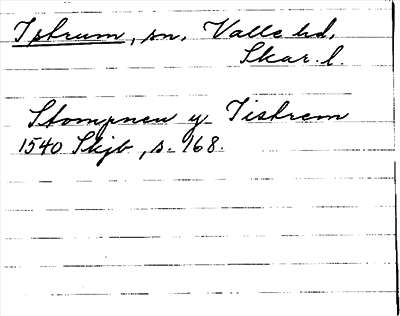 Istrum, sn, Valle hd,
Skar. l.
Stompnen y Tistrem
1540 Skjb, s. 168.